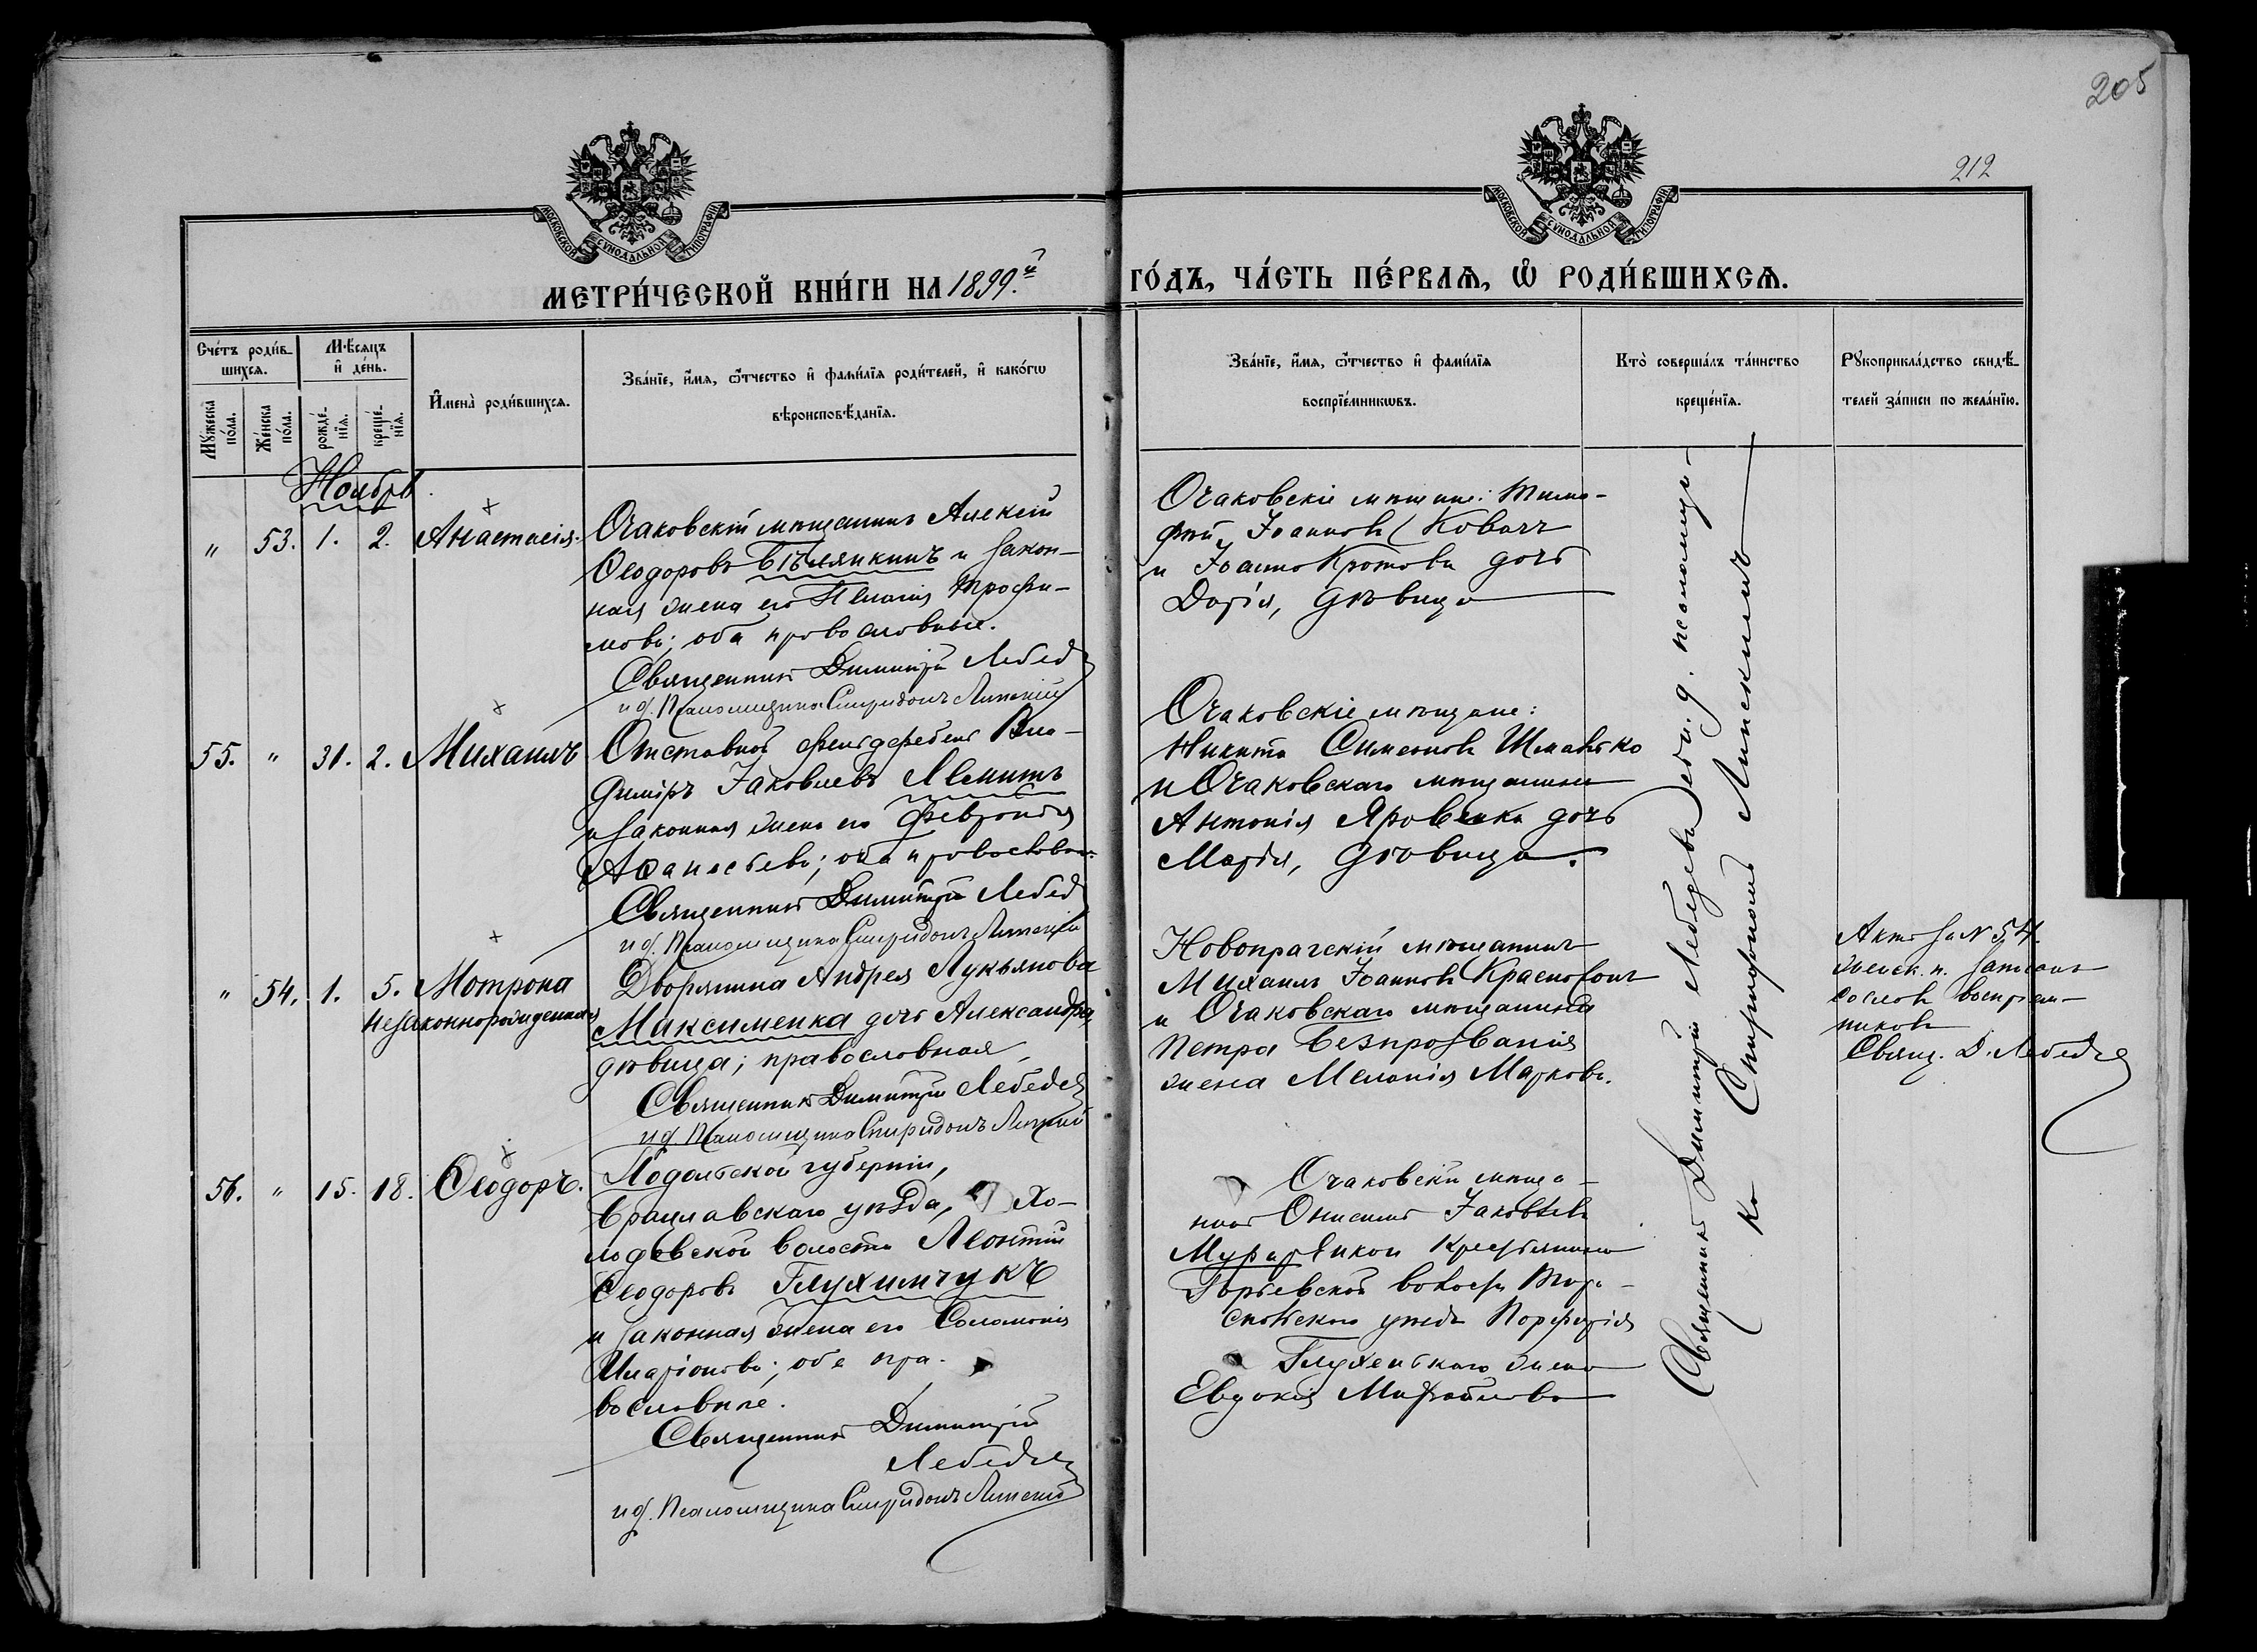 205
212
МОСКОВСКОЙ СѴНОДАЛЬНОЙ ТИПОГРАФІИ
МОСКОВСКОЙ СѴНОДАЛЬНОЙ ТИПОГРАФІИ
МЕТРИ́ЧЕСКОЙ КНИ́ГИ НА 1899.й
ГО́ДЪ, ЧА́СТЬ ПЕ́РВАѦ, Ѿ РОДИ́ВШИХСѦ.
Счéтъ роди́в-
шихсѧ.
Мꙋ́жеска по́ла.
Же́нска по́ла.
Мѣ́сѧцъ
и҆ де́нь.
рожде́-нїѧ.
креще́-нїѧ.
И҆мена̀ роди́вшихсѧ.
Зва́нїе, и҆́мѧ, ѻ҆́тчество и҆ фами́лїѧ роди́телей, и҆ како́гѡ
вѣроисповѣ́данїѧ.
Зва́нїе, и҆́мѧ, ѻ҆́тчество и҆ фами́лїѧ
воспрїе́мникѡвъ.
Кто̀ соверша́лъ та́инство
креще́нїѧ.
Рꙋкоприкла́дство свидѣ́-
телей за́писи по жела́нїю.
Ноябрь
" 53. 1. 2. Анастасія.
Очаковскій мѣщанинъ Алексѣй
Ѳеодоровъ Бѣлянкинъ и закон-
ная жена его Пелагія Трофи-
мова; оба православные.
Священникъ Димитрій Лебедев
и. д. Псаломщика Спиридонъ Липскій
Очаковскіе мѣщане: Тимо-
фей Іоанновъ Ковачъ
и Іоанна Кротова дочь
Дарія, дѣвица
55. " 31. 2. Михаилъ
Отставной фельдфебель Вла-
димиръ Іаковлевъ
и законная жена его Февронія
Аѳанасьева; оба православн.
Священникъ Димитрій Лебедев
и. д. Псаломщика Спиридонъ Липскій
Очаковскіе мѣщане:
Никита Симеоновъ Шматько
и Очаковскаго мѣщанина
Антонія Яровенка дочь
Марія, дѣвица.
" 54. 1. 5. Мотрона
незаконнорожденная
Дворянина Андрея Лукьянова
Максименка дочь Александра,
дѣвица; православная
Священникъ Димитрій Лебедев
и. д. Псаломщика Спиридонъ Липскій
Новопрагскій мѣщанинъ
Михаилъ Іоанновъ
и Очаковскаго мѣщанина
Петра Безпрозванія
жена Меланія Маркова.
Актъ за N 54.
женск. п. записанъ
со словъ воспріем-
никовъ
Свящ. Д. Лебедев
56. " 15. 18. Ѳеодоръ.
Подольской губерніи,
Брацлавскаго уѣзда, Хо-
лодовской волости Леонтій
Ѳеодоровъ Глухимчукъ
и законная жена его Соломонія
Иларіонова; оба пра-
вославные.
Священникъ Димитрій
Лебедев
и. д. Псаломщика Спиридонъ Липскій
Очаковскій мѣща-
нинъ Онисимъ Іаковлевъ
и крестьянина
волости Тира-
спольскаго уѣзда Порфирія
жена
Евдокія Михайлова
Священникъ Димитрій Лебедевъ и. д. псаломщи-
ка Спиридонъ Липскій